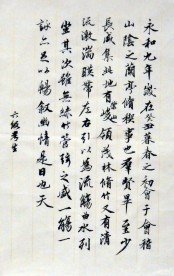 永和九年歲在癸丑暮春之初會于會稽
山陰之蘭亭脩稧事也群賢畢至少
長咸集此地有崇山峻領茂林脩竹又有清
流激湍暎帶左右引以為流觴曲水列
坐其次雖無絲竹管弦之盛一觴一
詠亦足以暢叙幽情是日也天